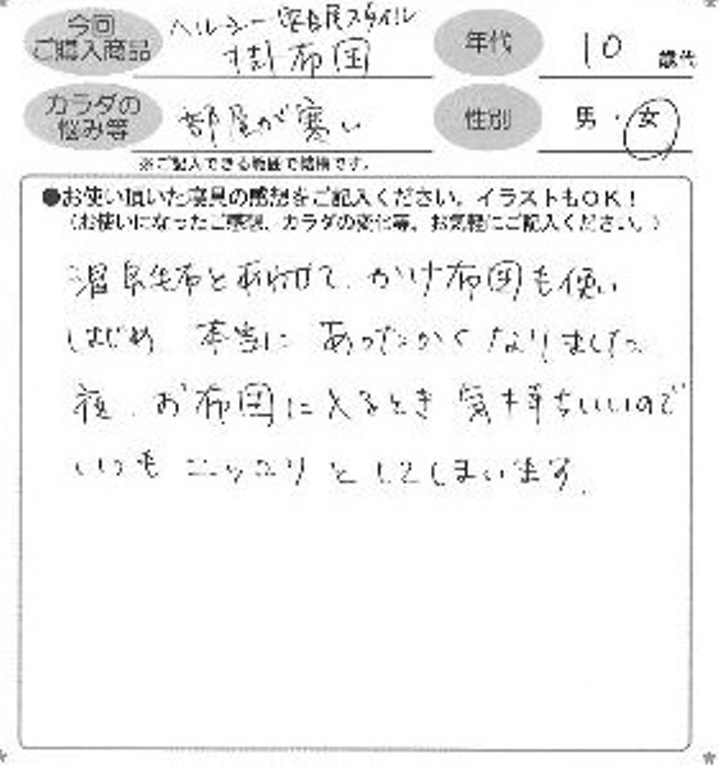 今回
ご購入商品
ヘルシー 安眠スタイル
掛布団
年代
10 歳代
カラダの
悩み等
部屋が寒い
性別
男・女
※ご記入できる範囲で結構です。
●お使い頂いた寝具の感想をご記入ください。イラストもOK!
(お使いになったご感想、カラダの変化等、お気軽にご記入ください。)
毛布とあわせて、かけ布団も使い
はじめ、本当にあったかくなりました。
夜、お布団に入るとき気持ちいいので
いつもニッコリとしてしまいます。